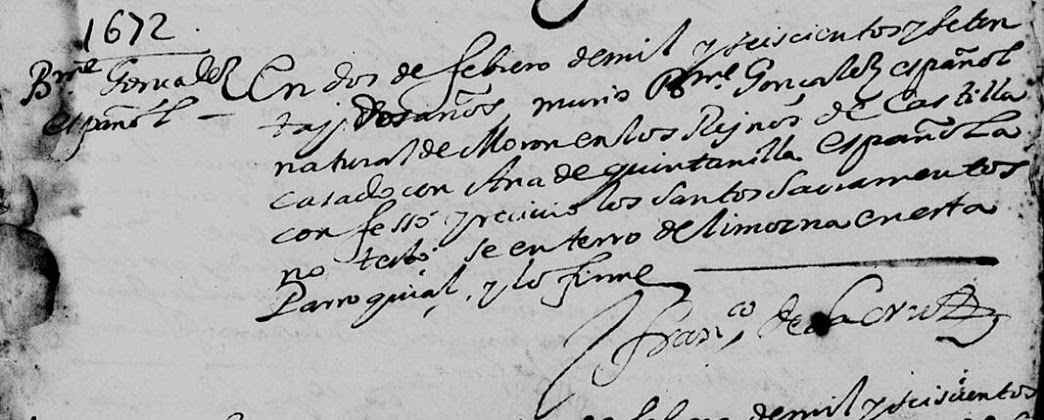 1672
Bme Gonzalez
español
En dos de febrero de mil y seiscientos y seten
ta y dos años murio Bme Gonzalez español
natural de Moron en los Reynos de Castilla
casado con Ana de quintanilla española
confessó y reciuio los santos sacramentos
no testó, se enterro de limozna en esta
Parroquial, y lo firme
Franco de la Cruz
febrero de mil y seiscientos